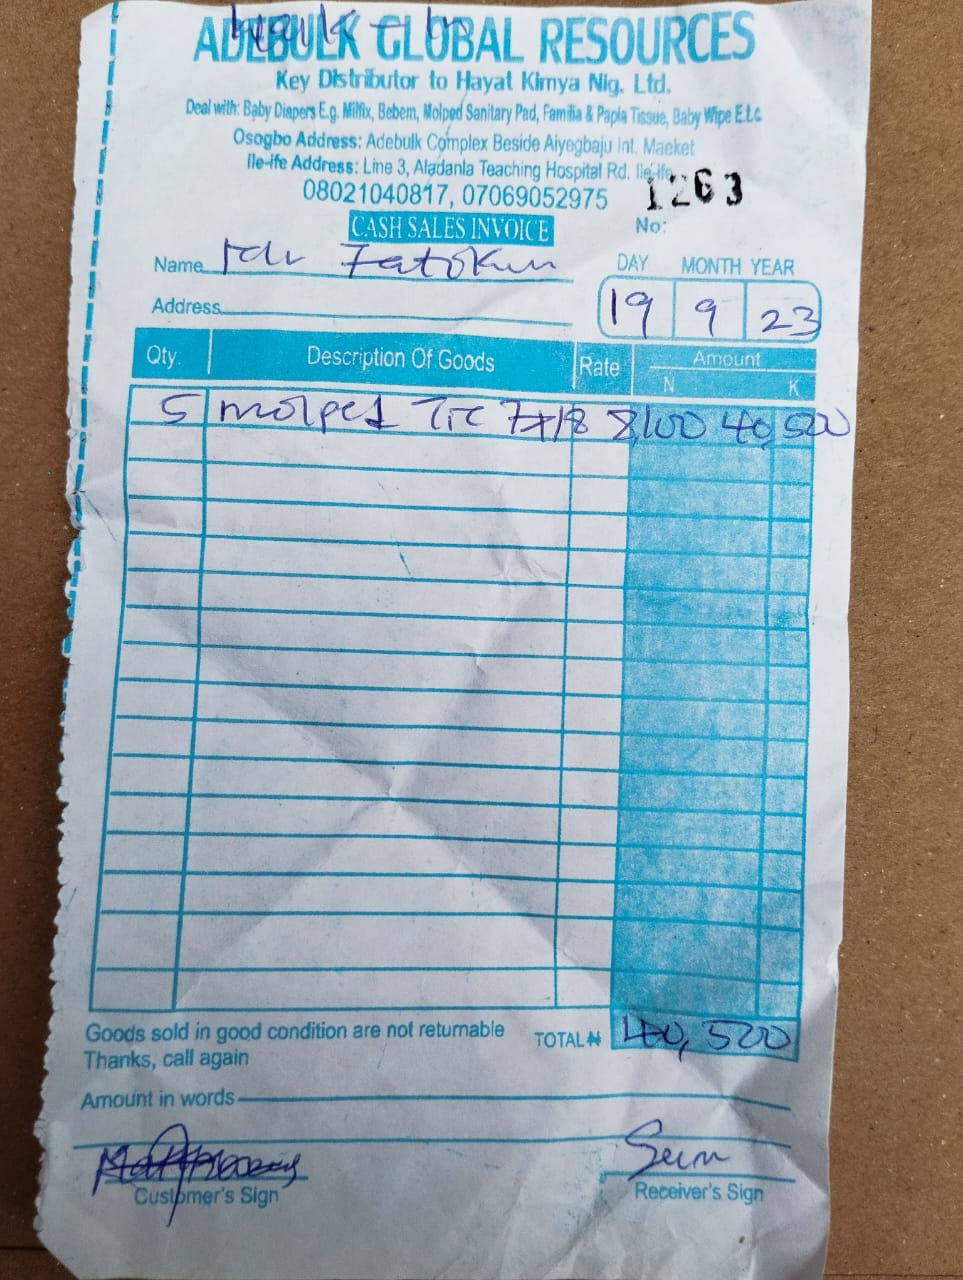 ADEBULK GLOBAL RESOURCES
Key Distributor to Hayat Kimya Nig. Ltd.
Deal with: Baby Diapers E.g. Milfix, Bebem, Molped Sanitary Pad, Familia & Papia Tissue, Baby Wipe E.t.c
Osogbo Address: Adebulk Complex Beside Aiyegbaju Int. Maeket
Ile-ife Address: Line 3, Aladanla Teaching Hospital Rd. Ile-ife
08021040817, 07069052975 1263
CASH SALES INVOICE No:
Name Fatokun DAY MONTH YEAR
Address 19 9 23
Qty. Description Of Goods Rate Amount
N K
5 molped 7+18 8,100 40,500
Goods sold in good condition are not returnable TOTAL ₦ 40,500
Thanks, call again
Amount in words
Seun
Customer's Sign Receiver's Sign